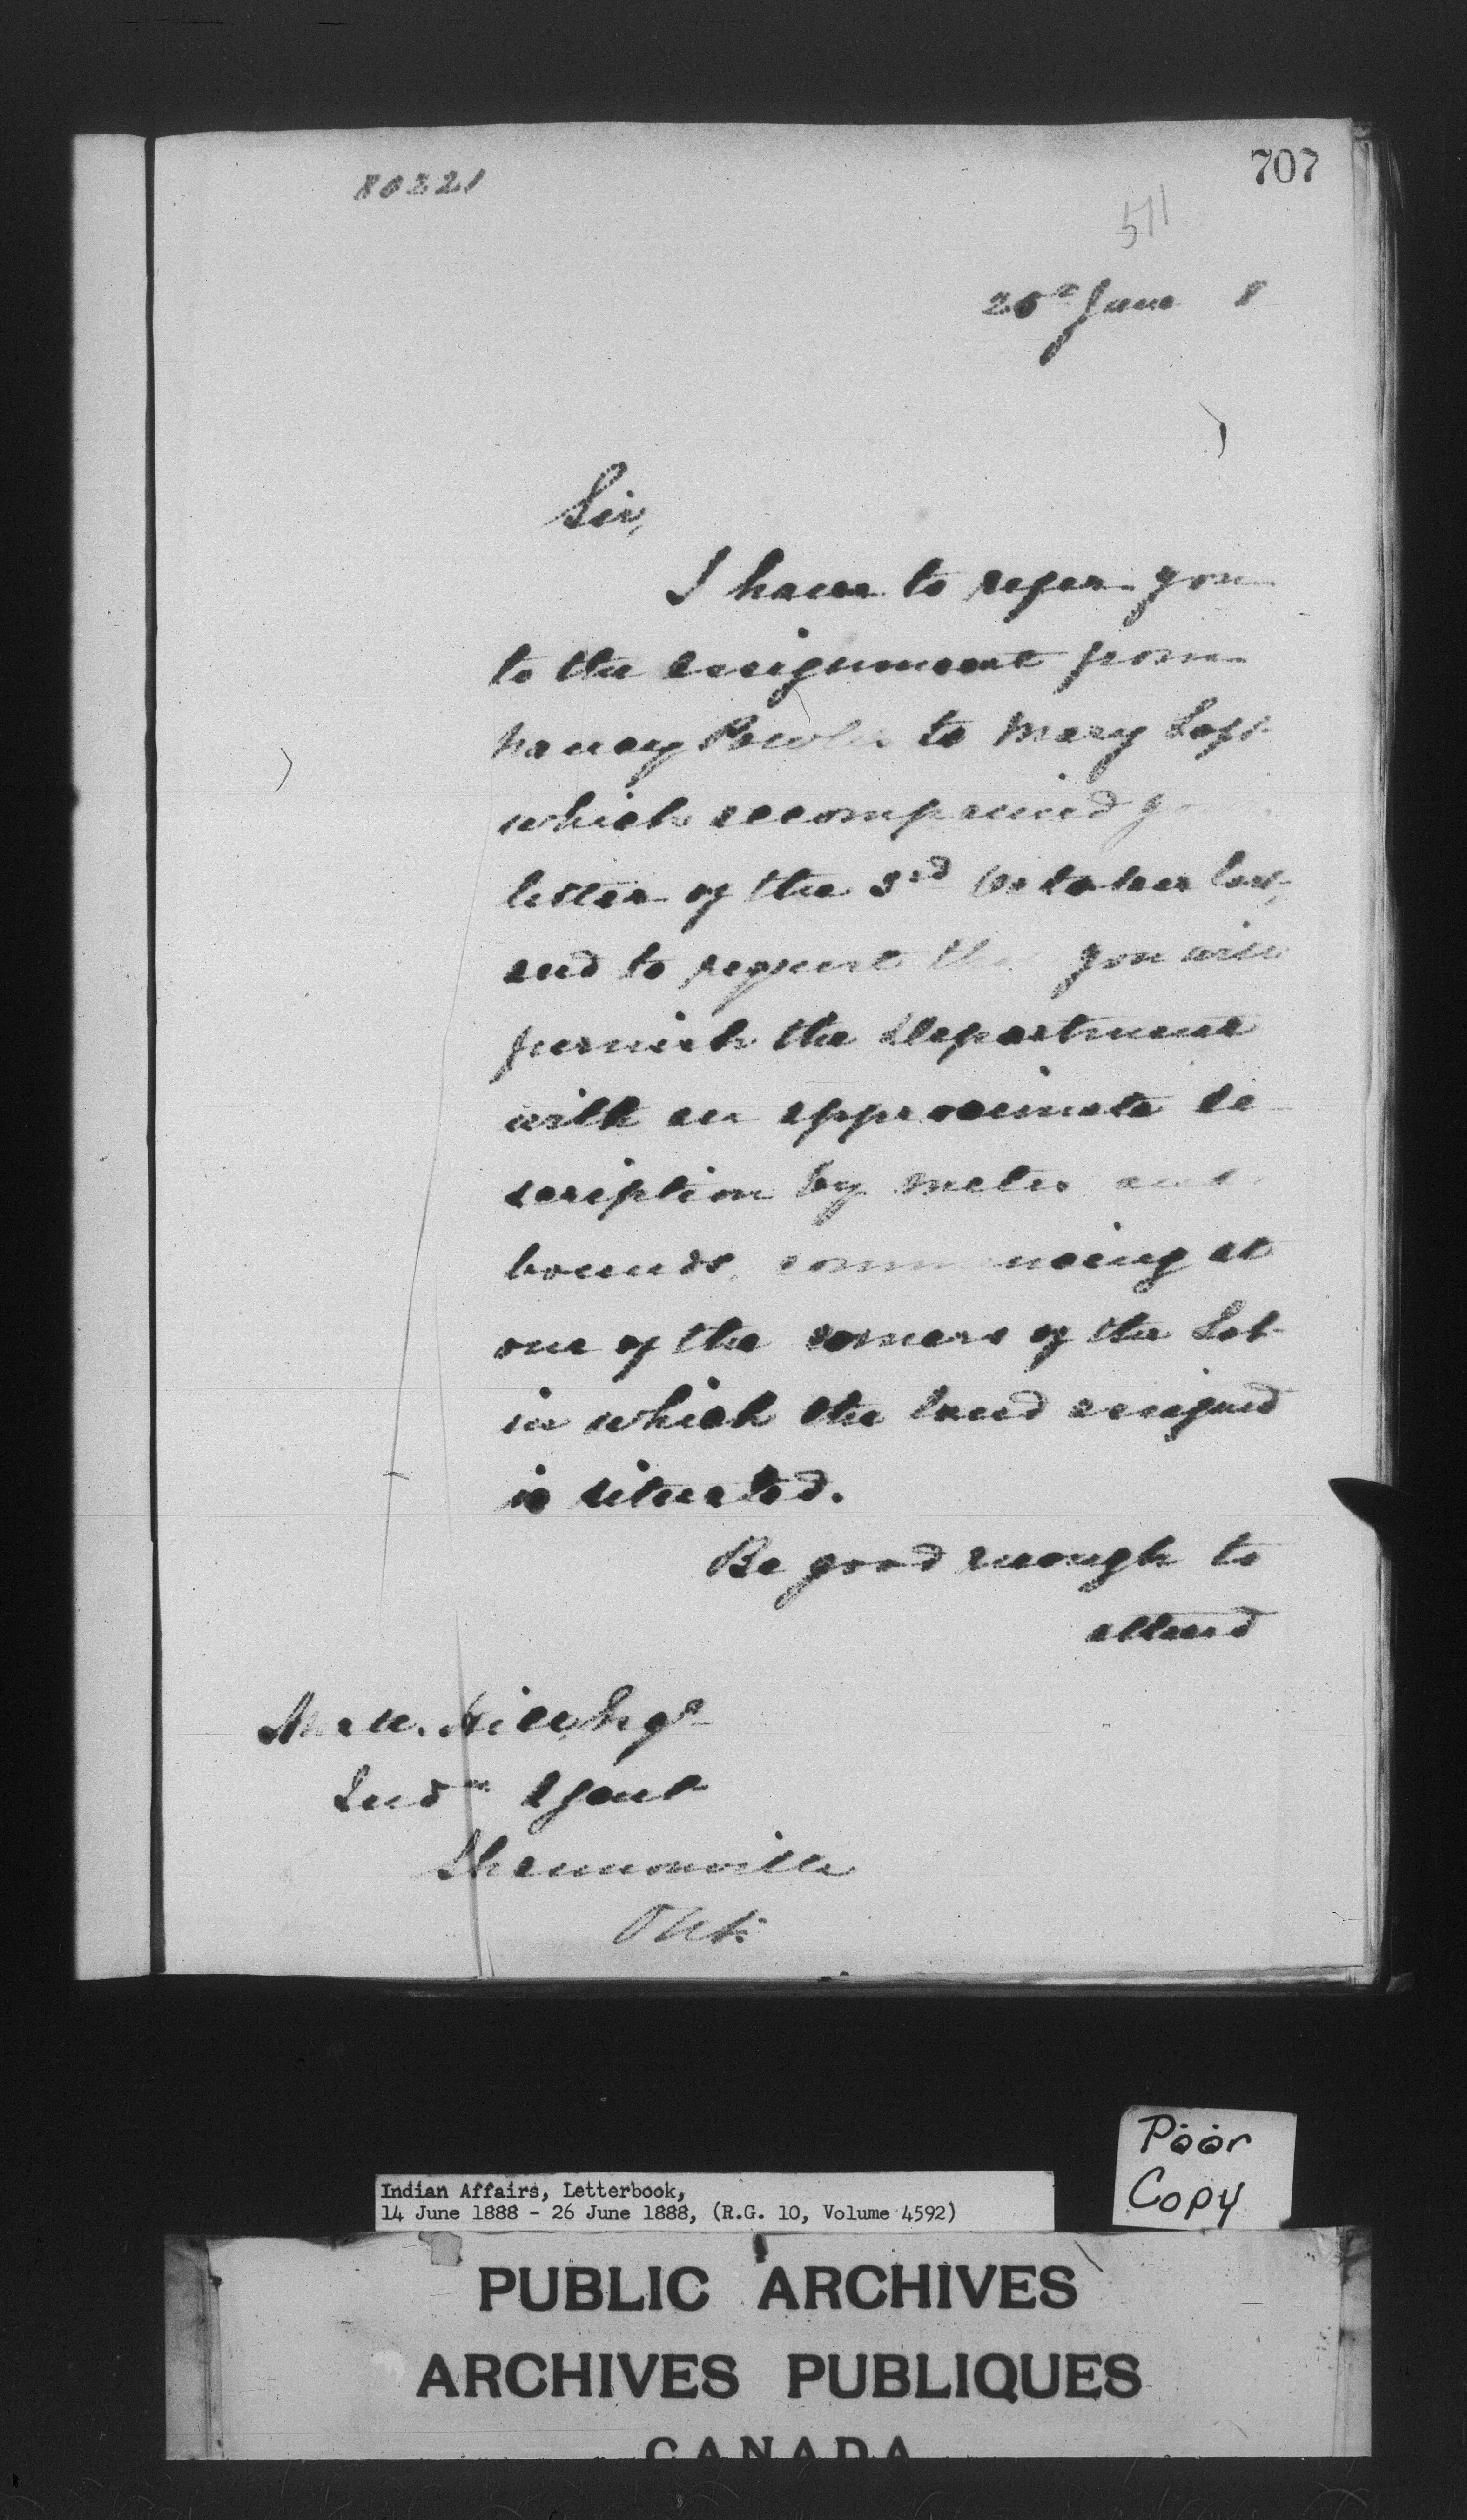 80221
707
511
25th June 8
Sir,
I have to refer you
to the assignment from
Nancy Powles to Mary Loft
which accompanied your
letter of the 3rd October last,
and to request that you will
furnish the Department
with an approximate de-
scription by metes and
bounds, commencing at
one of the corners of the Lot
in which the land assigned
is situated.
Be good enough to
attend
Matt. Hill, Esqr
Indn Agent
Shannonville
Ont:
Poor
Copy
Indian Affairs, Letterbook,
14 June 1888 - 26 June 1888, (R.G. 10, Volume 4592)
PUBLIC ARCHIVES
ARCHIVES PUBLIQUES
CANADA